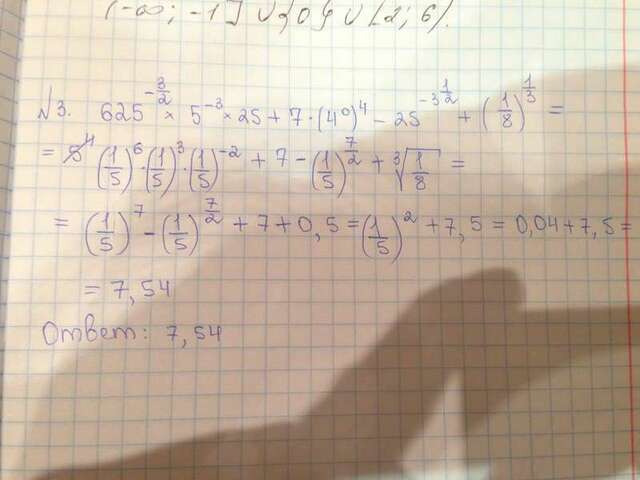 (-∞; -1] ∪ {0} ∪ [2; 6).
№3. 625^{-3/2} × 5^{-3} × 25 + 7 · (4^0)^4 - 25^{-3 1/2} + (1/8)^{1/3} =
= 5^4
(1/5)^6 · (1/5)^3 · (1/5)^{-2} + 7 - (1/5)^{7/2} + ∛(1/8) =
= (1/5)^7 - (1/5)^{7/2} + 7 + 0,5 = (1/5)^2 + 7,5 = 0,04 + 7,5 =
= 7,54
Ответ: 7,54